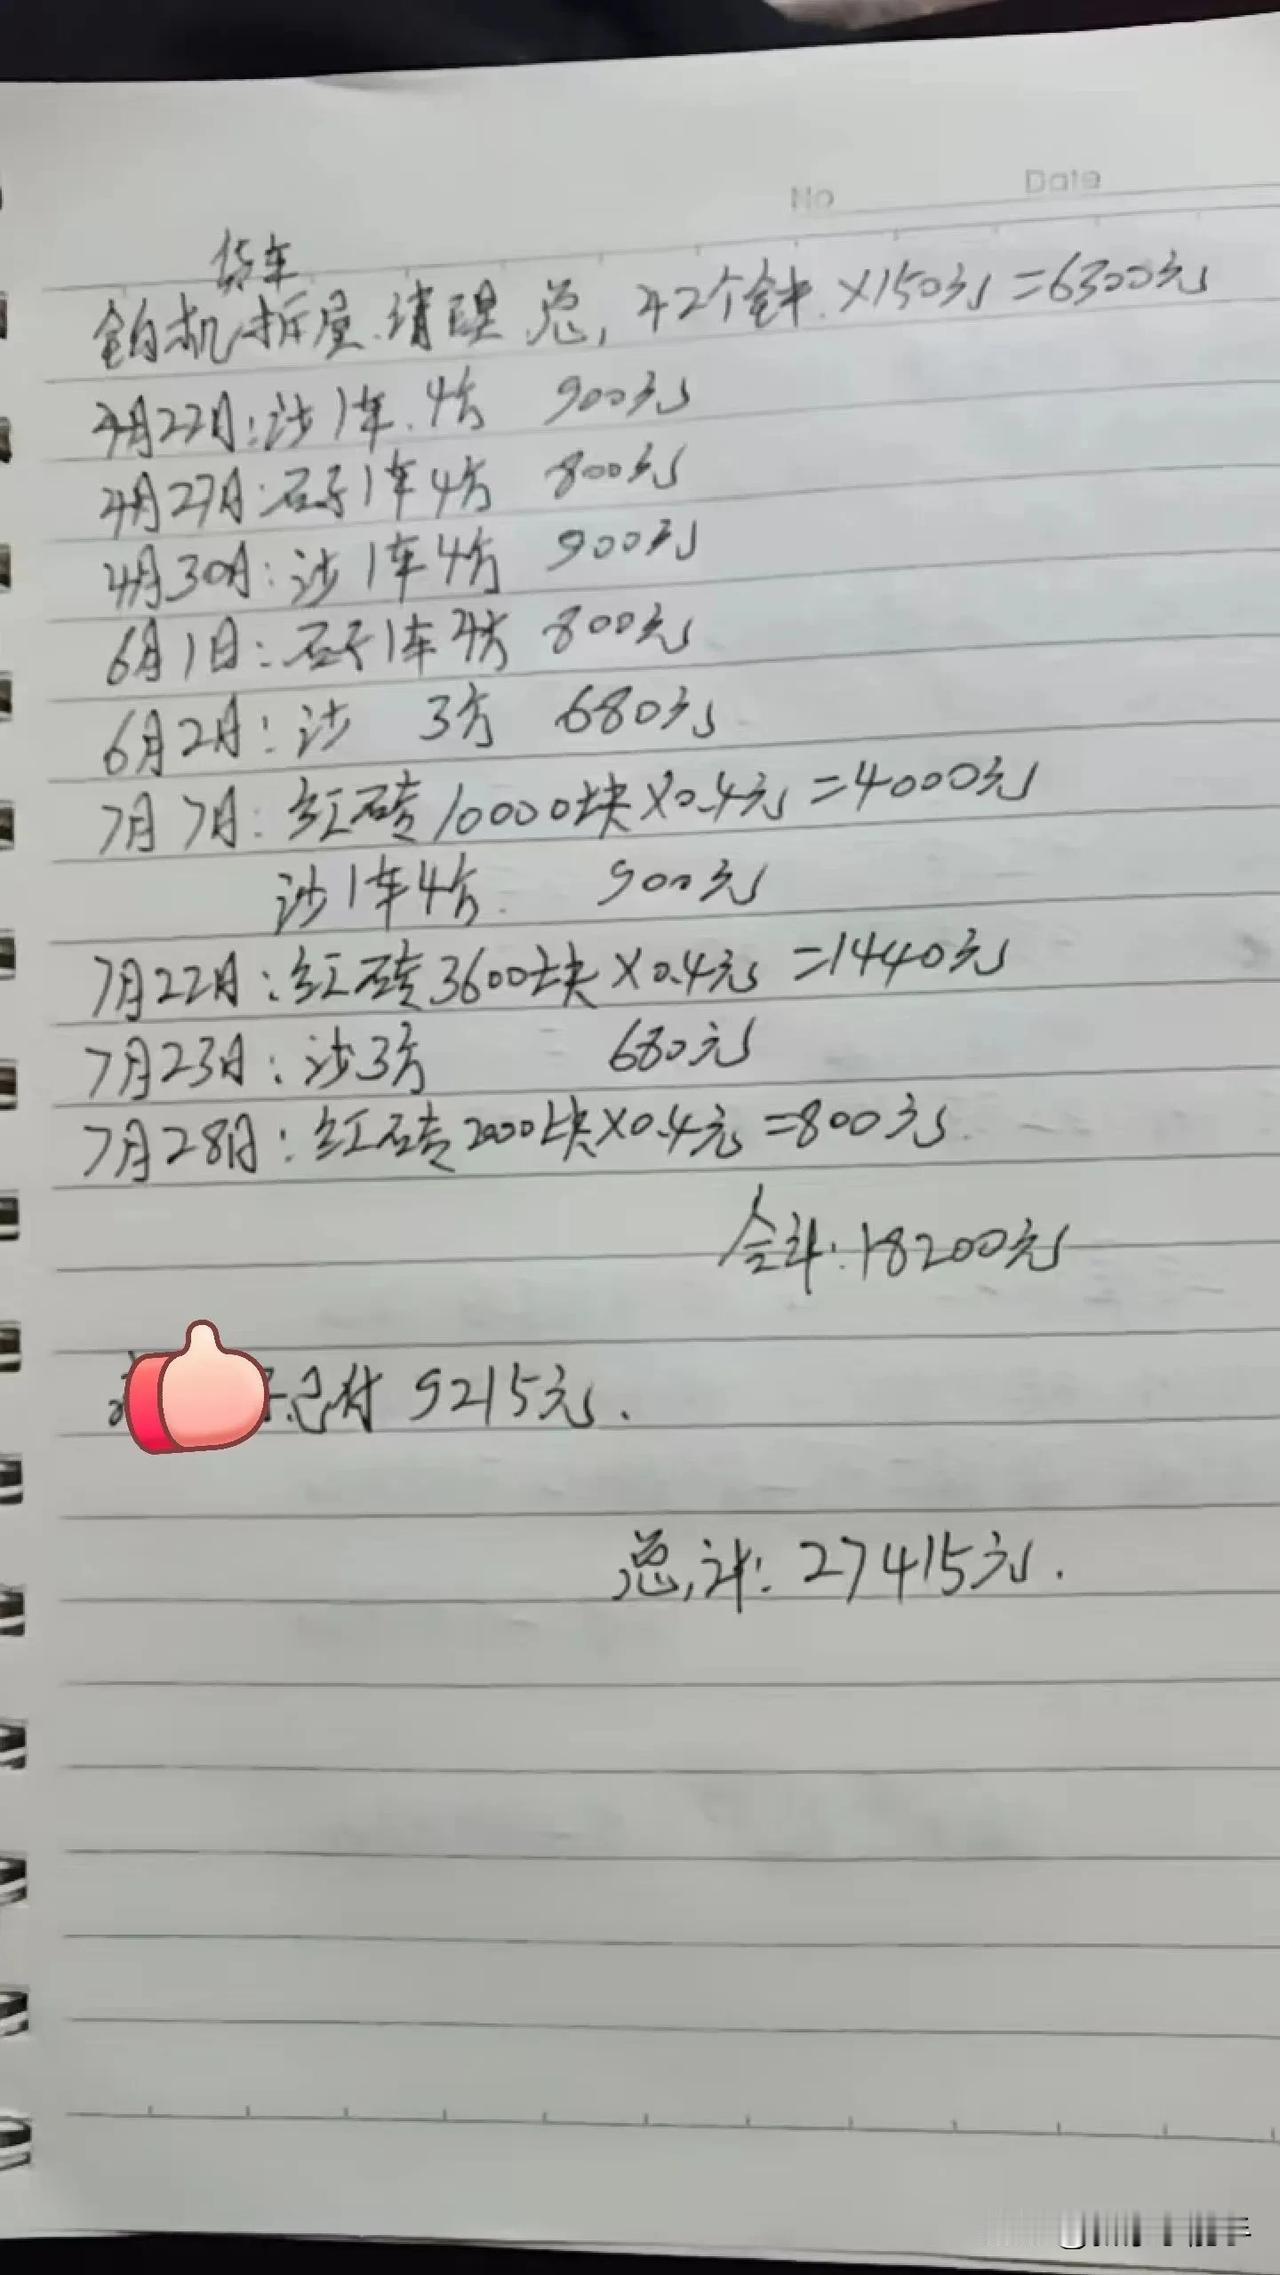 No Date
货车
钩机拆屋.清理 总, 42个钟.×150元=6300元
4月22日:沙1车.4方 900元
4月27日:石子1车4方 800元
4月30日:沙1车4方 900元
6月1日:石子1车4方 800元
6月2日:沙 3方 680元
7月7日:红砖10000块×0.4元=4000元
沙1车4方. 900元
7月22日:红砖3600块×0.4元=1440元
7月23日:沙3方 680元
7月28日:红砖2000块×0.4元=800元
合计:18200元
已付 9215元.
总,计:27415元.